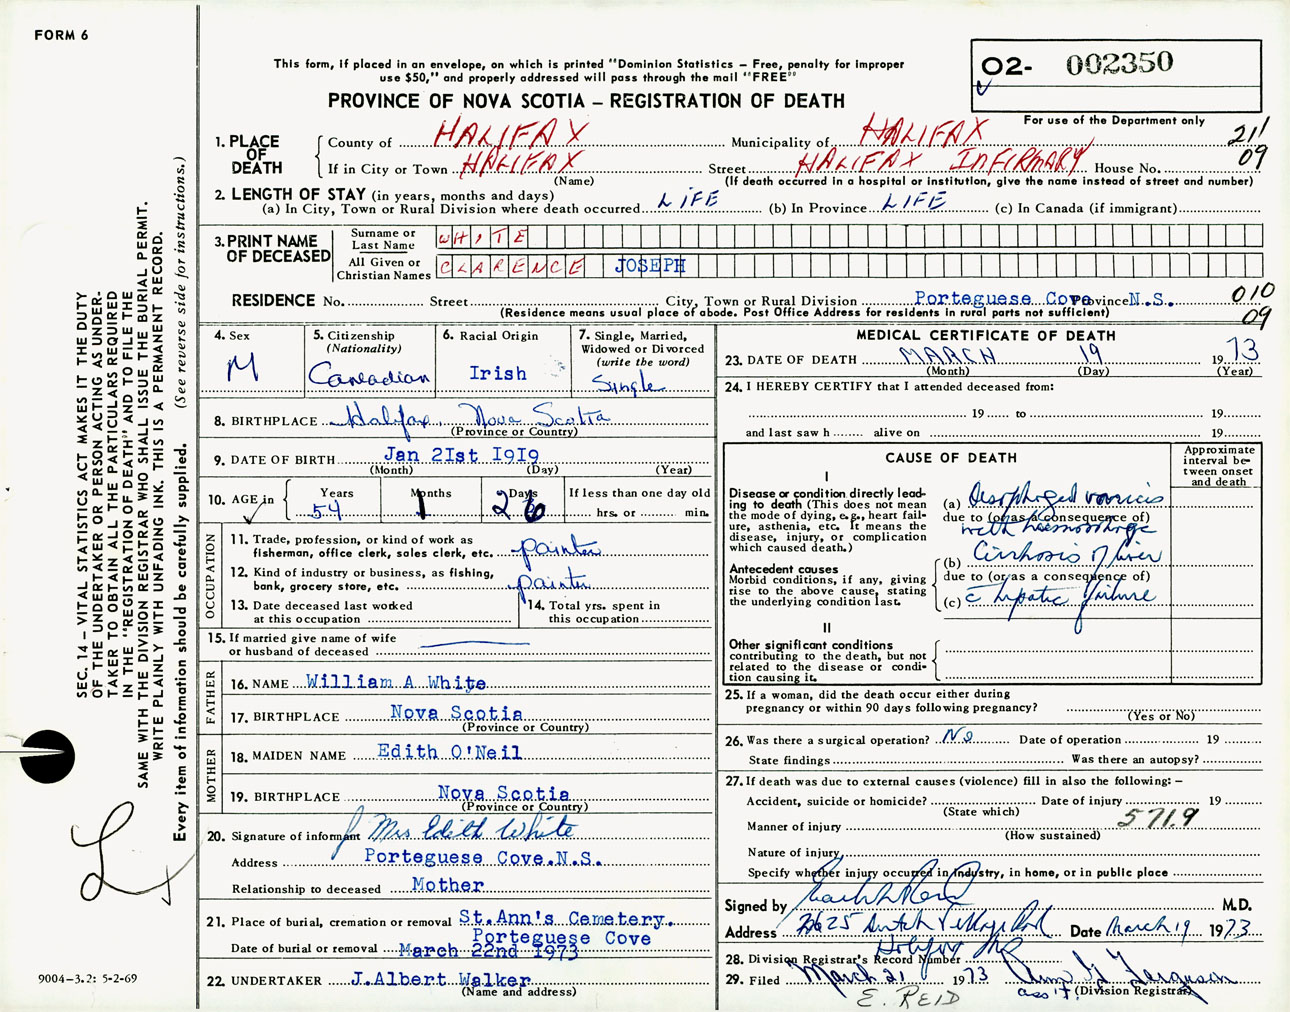 FORM 6
This form, if placed in an envelope, on which is printed "Dominion Statistics – Free, penalty for improper
use $50," and properly addressed will pass through the mail "FREE"
O2- 002350
PROVINCE OF NOVA SCOTIA – REGISTRATION OF DEATH
For use of the Department only
1. PLACE OF DEATH
County of HALIFAX Municipality of HALIFAX 21'
If in City or Town HALIFAX Street HALIFAX INFIRMARY House No. 09
(Name) (If death occurred in a hospital or institution, give the name instead of street and number)
2. LENGTH OF STAY (in years, months and days)
(a) In City, Town or Rural Division where death occurred LIFE (b) In Province LIFE (c) In Canada (if immigrant)
3. PRINT NAME OF DECEASED
Surname or Last Name WHITE
All Given or Christian Names CLARENCE JOSEPH
RESIDENCE No. Street City, Town or Rural Division Porteguese Cove Province N.S. 010
(Residence means usual place of abode. Post Office Address for residents in rural parts not sufficient) 09
4. Sex
M
5. Citizenship
(Nationality)
Canadian
6. Racial Origin
Irish
7. Single, Married,
Widowed or Divorced
(write the word)
Single
8. BIRTHPLACE Halifax, Nova Scotia
(Province or Country)
9. DATE OF BIRTH Jan 2Ist I9I9
(Month) (Day) (Year)
10. AGE in
Years 54
Months 1
Days 26
If less than one day old
hrs. or min.
OCCUPATION
11. Trade, profession, or kind of work as
fisherman, office clerk, sales clerk, etc. painter
12. Kind of industry or business, as fishing,
bank, grocery store, etc. painter
13. Date deceased last worked
at this occupation
14. Total yrs. spent in
this occupation
15. If married give name of wife
or husband of deceased
FATHER
16. NAME William A White
17. BIRTHPLACE Nova Scotia
(Province or Country)
MOTHER
18. MAIDEN NAME Edith O'Neil
19. BIRTHPLACE Nova Scotia
(Province or Country)
20. Signature of informant Mrs Edith White
Address Porteguese Cove.N.S.
Relationship to deceased Mother
21. Place of burial, cremation or removal St.Ann's Cemetery.
Porteguese Cove
Date of burial or removal March 22nd 1973
22. UNDERTAKER J.Albert Walker
(Name and address)
MEDICAL CERTIFICATE OF DEATH
23. DATE OF DEATH MARCH 19 1973
(Month) (Day) (Year)
24. I HEREBY CERTIFY that I attended deceased from:
19 to 19
and last saw h alive on 19
CAUSE OF DEATH
Approximate
interval be-
tween onset
and death
I
Disease or condition directly lead-
ing to death (This does not mean
the mode of dying, e.g., heart fail-
ure, asthenia, etc. It means the
disease, injury, or complication
which caused death.)
(a) Oesophageal varices
due to (or as a consequence of)
with haemorrhage
Antecedent causes
Morbid conditions, if any, giving
rise to the above cause, stating
the underlying condition last.
(b) Cirrhosis of liver
due to (or as a consequence of)
(c) c̄ hepatic failure
II
Other significant conditions
contributing to the death, but not
related to the disease or condi-
tion causing it.
25. If a woman, did the death occur either during
pregnancy or within 90 days following pregnancy?
(Yes or No)
26. Was there a surgical operation? No Date of operation 19
State findings Was there an autopsy?
27. If death was due to external causes (violence) fill in also the following: –
Accident, suicide or homicide? Date of injury 19
(State which)
Manner of injury 571.9
(How sustained)
Nature of injury
Specify whether injury occurred in Industry, in home, or in public place
Signed by M.D.
Address 2625 Dutch Village Rd Date March 19 1973
Halifax NS
28. Division Registrar's Record Number
29. Filed March 21 1973 Ferguson
Ass't (Division Registrar)
E. REID
SEC. 14 – VITAL STATISTICS ACT MAKES IT THE DUTY
OF THE UNDERTAKER OR PERSON ACTING AS UNDER-
TAKER TO OBTAIN ALL THE PARTICULARS REQUIRED
IN THE "REGISTRATION OF DEATH" AND TO FILE THE
SAME WITH THE DIVISION REGISTRAR WHO SHALL ISSUE THE BURIAL PERMIT.
WRITE PLAINLY WITH UNFADING INK. THIS IS A PERMANENT RECORD.
Every item of information should be carefully supplied. (See reverse side for instructions.)
9004–3.2: 5-2-69